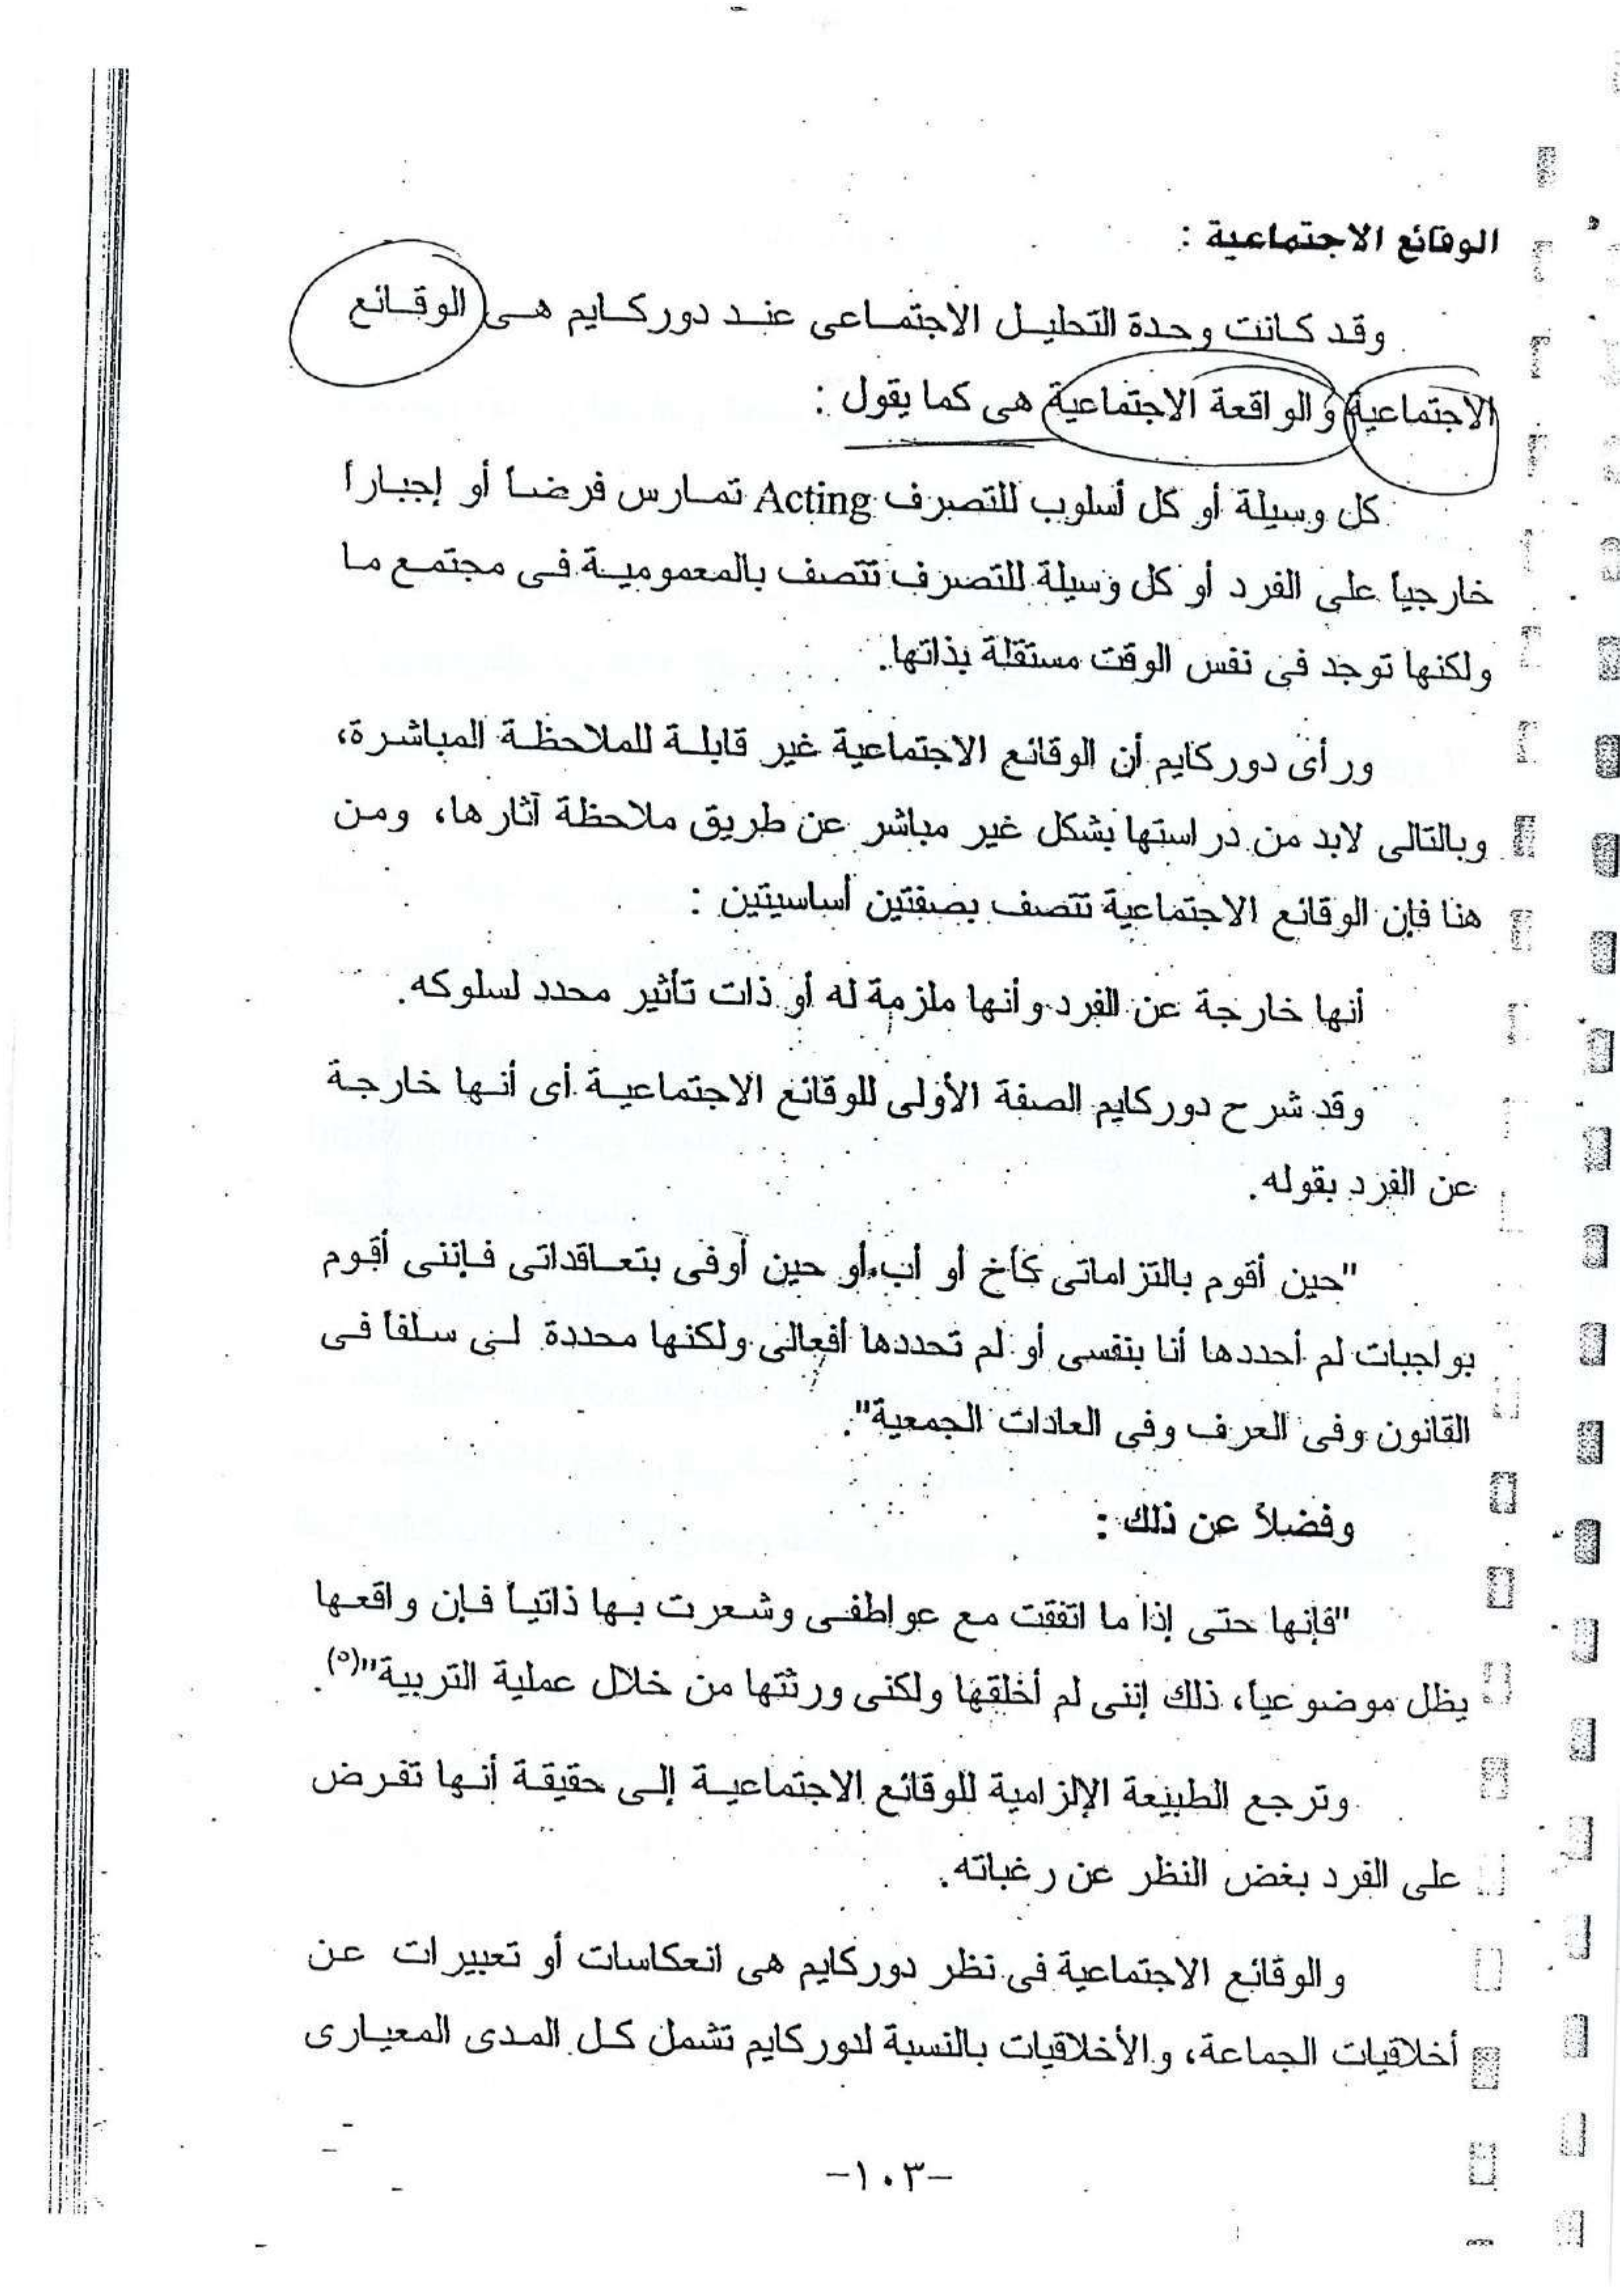 الوقائع الاجتماعية :
وقد كانت وحدة التحليل الاجتماعى عند دوركايم هى الوقائع
الاجتماعية والواقعة الاجتماعية هى كما يقول :
كل وسيلة أو كل أسلوب للتصرف Acting تمارس فرضاً أو إجباراً
خارجياً على الفرد أو كل وسيلة للتصرف تتصف بالمعمومية فى مجتمع ما
ولكنها توجد فى نفس الوقت مستقلة بذاتها.
ورأى دوركايم أن الوقائع الاجتماعية غير قابلة للملاحظة المباشرة،
وبالتالى لابد من دراستها بشكل غير مباشر عن طريق ملاحظة آثارها، ومن
هنا فإن الوقائع الاجتماعية تتصف بصفتين أساسيتين :
أنها خارجة عن الفرد وأنها ملزمة له أو ذات تأثير محدد لسلوكه.
وقد شرح دوركايم الصفة الأولى للوقائع الاجتماعية أى أنها خارجة
عن الفرد بقوله.
"حين أقوم بالتزاماتى كأخ أو أب أو حين أوفى بتعاقداتى فإننى أقوم
بواجبات لم أحددها أنا بنفسى أو لم تحددها أفعالى ولكنها محددة لى سلفاً فى
القانون وفى العرف وفى العادات الجمعية".
وفضلاً عن ذلك :
"فإنها حتى إذا ما اتفقت مع عواطفى وشعرت بها ذاتياً فإن واقعها
يظل موضوعياً، ذلك إننى لم أخلقها ولكنى ورثتها من خلال عملية التربية"(٥).
وترجع الطبيعة الإلزامية للوقائع الاجتماعية إلى حقيقة أنها تفرض
على الفرد بغض النظر عن رغباته.
والوقائع الاجتماعية فى نظر دوركايم هى انعكاسات أو تعبيرات عن
أخلاقيات الجماعة، والأخلاقيات بالنسبة لدوركايم تشمل كل المدى المعيارى
-١٠٣-